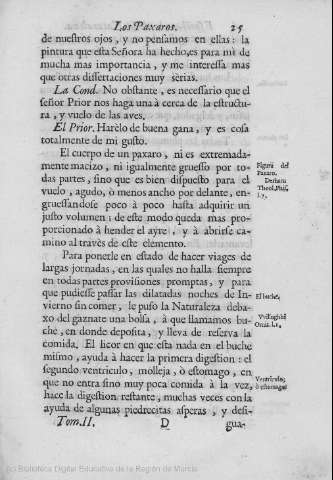 Los Paxaros. 25
de nuestros ojos, y no pensamos en ellas: la
pintura que esta Señora ha hecho, es para mi de
mucha mas importancia, y me interessa mas
que otras dissertaciones muy sèrias.
La Cond. No obstante, es necessario que el
señor Prior nos haga una à cerca de la estructu-
ra, y vuelo de las aves.
El Prior. Harèlo de buena gana, y es cosa
totalmente de mi gusto.
El cuerpo de un paxaro, ni es extremada-
mente macizo, ni igualmente gruesso por to-
das partes, sino que es bien dispuesto para el
vuelo, agudo, ò menos ancho por delante, en-
gruessandose poco à poco hasta adquirir un
justo volumen: de este modo queda mas pro-
porcionado à hender el ayre, y à abrirse ca-
mino al travès de este elemento.
Figura del
Paxaro.
Derham
Theol. Phis.
l.7.
Para ponerle en estado de hacer viages de
largas jornadas, en las quales no halla siempre
en todas partes provisiones promptas, y para
que pudiesse passar las dilatadas noches de In-
vierno sin comer, le puso la Naturaleza deba-
xo del gaznate una bolsa, à que llamamos bu-
che, en donde deposita, y lleva de reserva la
comida. El licor en que esta nada en el buche
mismo, ayuda à hacer la primera digestion: el
segundo ventriculo, molleja, ò estomago, en
que no entra sino muy poca comida à la vez,
hace la digestion restante, muchas veces con la
ayuda de algunas piedrecitas asperas, y desi-
El buche.
Willughbi
Ventriculo,
ò estomago
Tom. II. D gua-
(c) Biblioteca Digital Educativa de la Región de Murcia